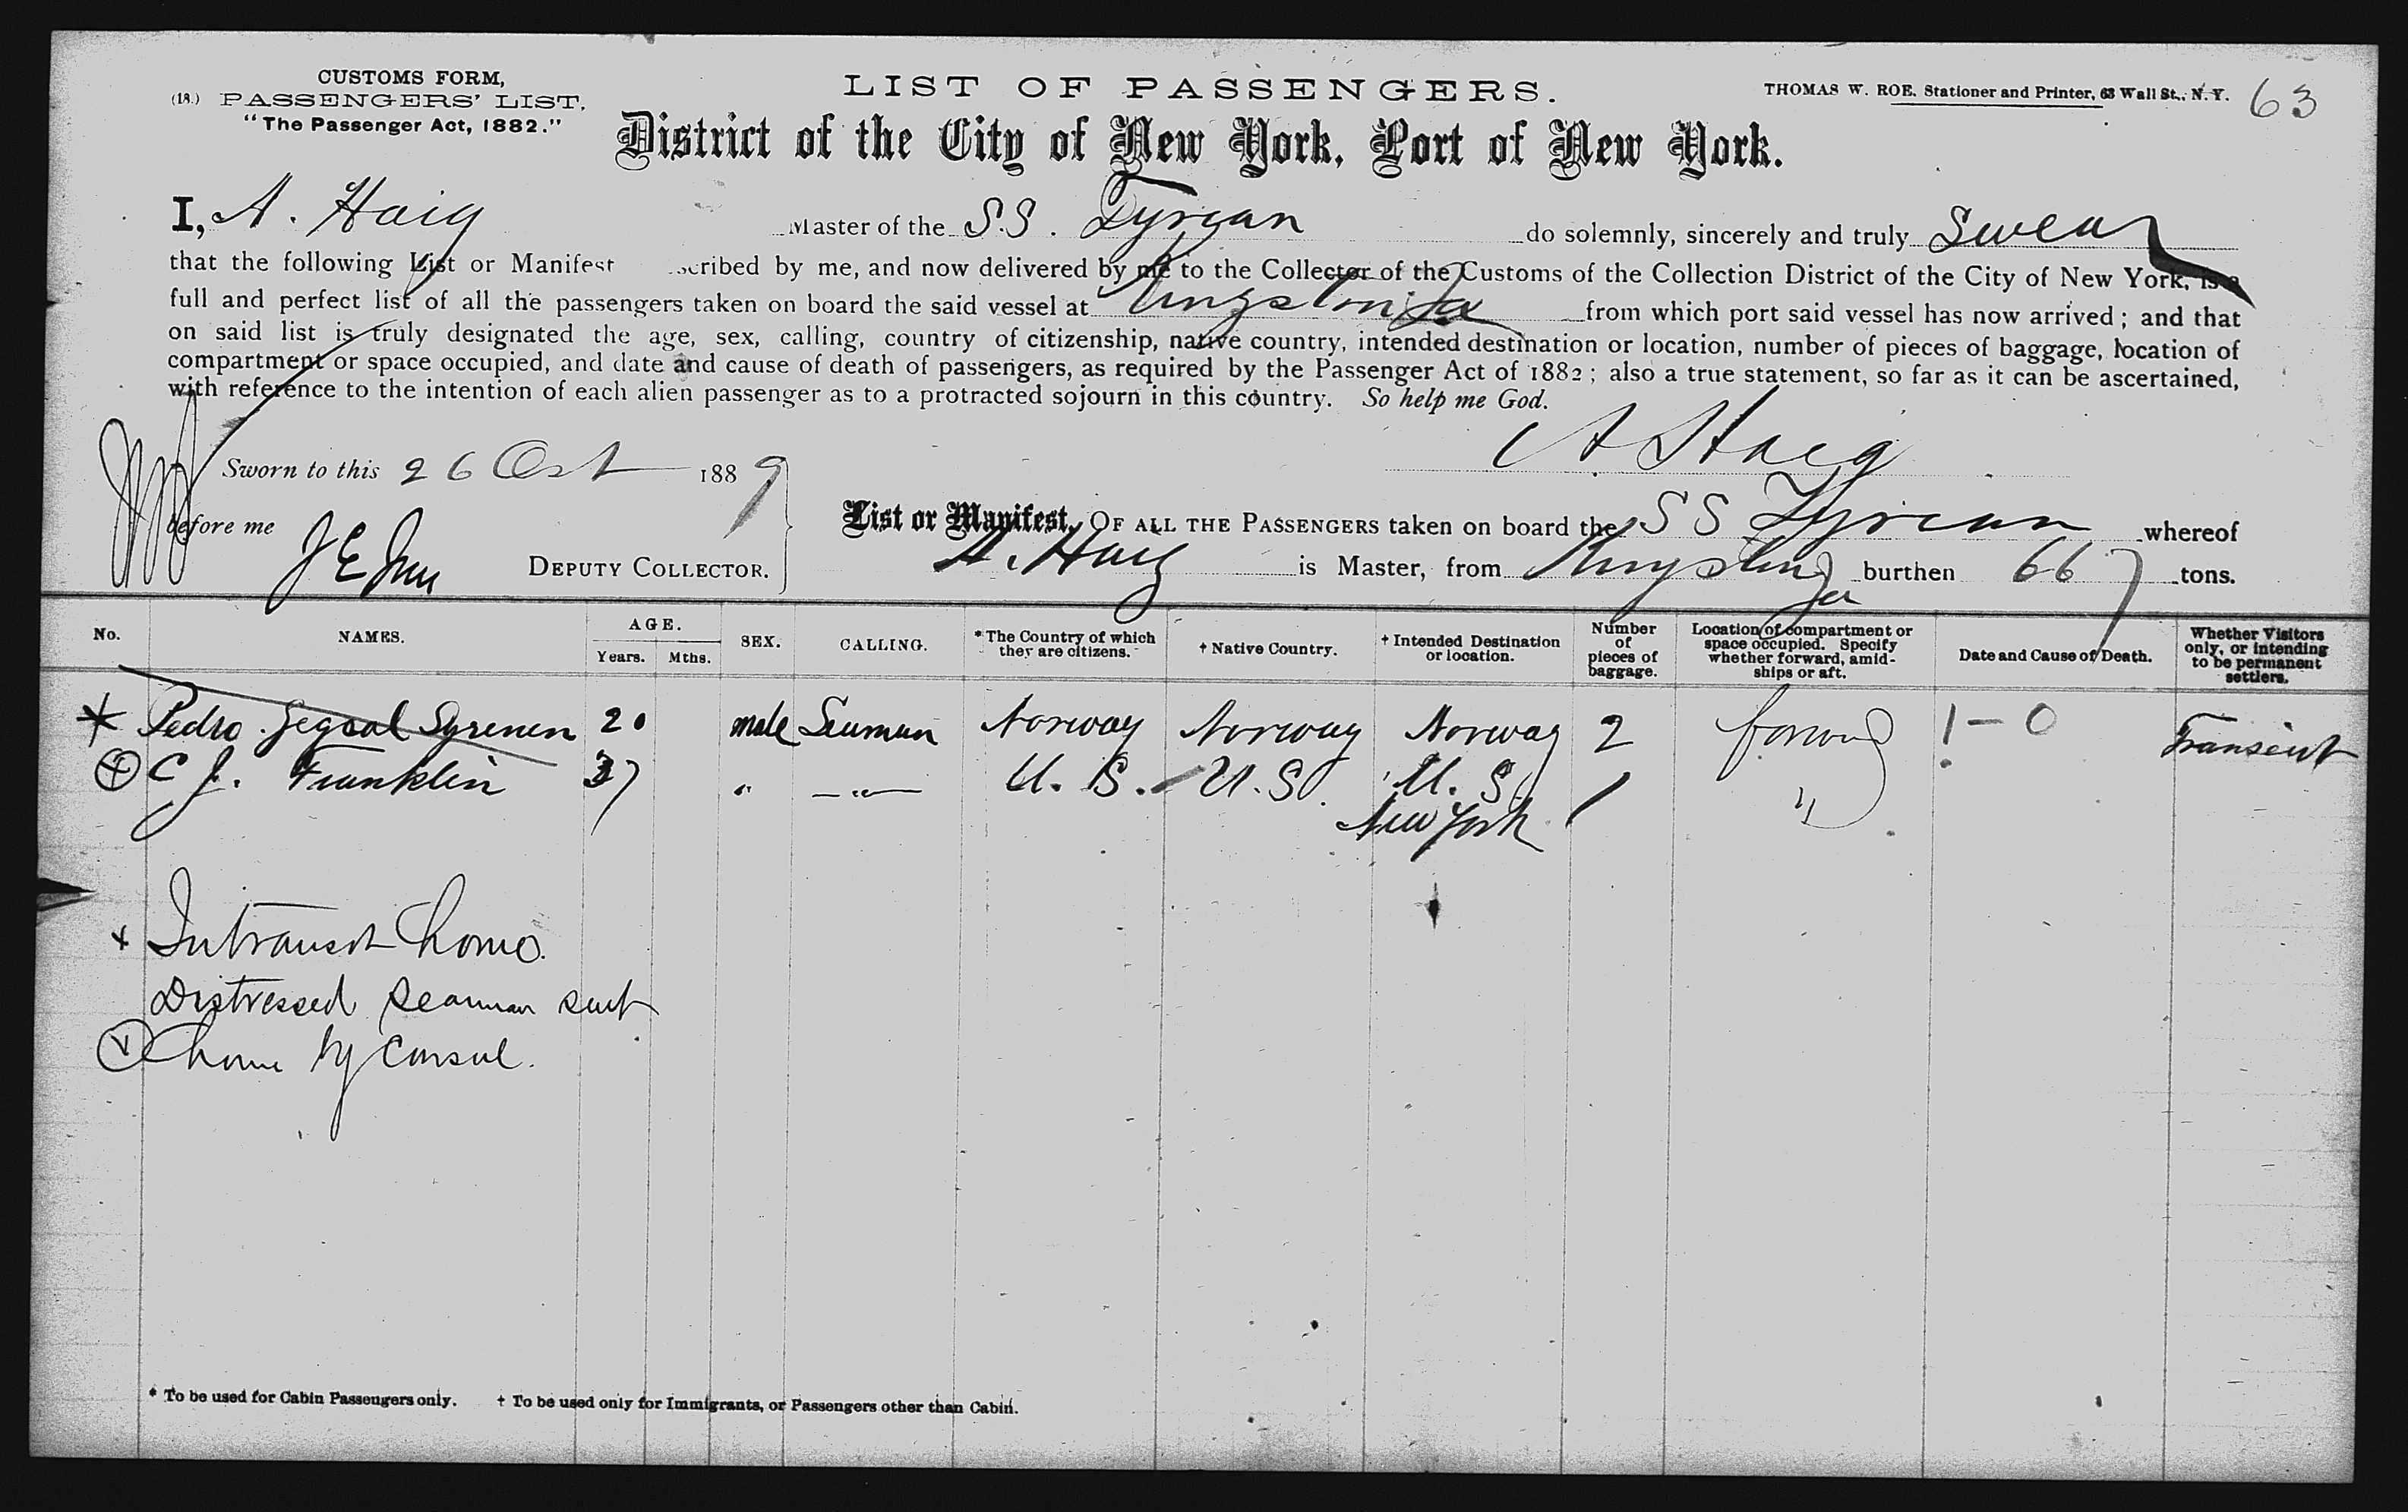 CUSTOMS FORM,
(18.) PASSENGERS' LIST.
"The Passenger Act, 1882."
LIST OF PASSENGERS.
THOMAS W. ROE, Stationer and Printer, 63 Wall St., N.Y. 63
District of the City of New York, Port of New York.
I, A. Haig Master of the S.S. Tyrian do solemnly, sincerely and truly Swear
that the following List or Manifest scribed by me, and now delivered by me to the Collector of the Customs of the Collection District of the City of New York, is a
full and perfect list of all the passengers taken on board the said vessel at Kingston Ja from which port said vessel has now arrived; and that
on said list is truly designated the age, sex, calling, country of citizenship, native country, intended destination or location, number of pieces of baggage, location of
compartment or space occupied, and date and cause of death of passengers, as required by the Passenger Act of 1882; also a true statement, so far as it can be ascertained,
with reference to the intention of each alien passenger as to a protracted sojourn in this country. So help me God.
A Haig
Sworn to this 26 Oct 1889
before me
DEPUTY COLLECTOR.
List or Manifest, OF ALL THE PASSENGERS taken on board the SS Tyrian whereof
A. Haig is Master, from Kingston Ja burthen 667 tons.
No. NAMES. AGE. Years. Mths. SEX. CALLING. *The Country of which they are citizens. † Native Country. † Intended Destination or location. Number of pieces of baggage. Location of compartment or space occupied. Specify whether forward, amidships or aft. Date and Cause of Death. Whether Visitors only, or intending to be permanent settlers.
Pedro Syrenen 20 male Seaman Norway Norway Norway 2 forward 1-0 Transient
C J. Franklin 37 " —"— U.S. U.S. U.S. 1 "
New York
x Intransit home.
Distressed Seaman sent
home by Consul.
* To be used for Cabin Passengers only. † To be used only for Immigrants, or Passengers other than Cabin.